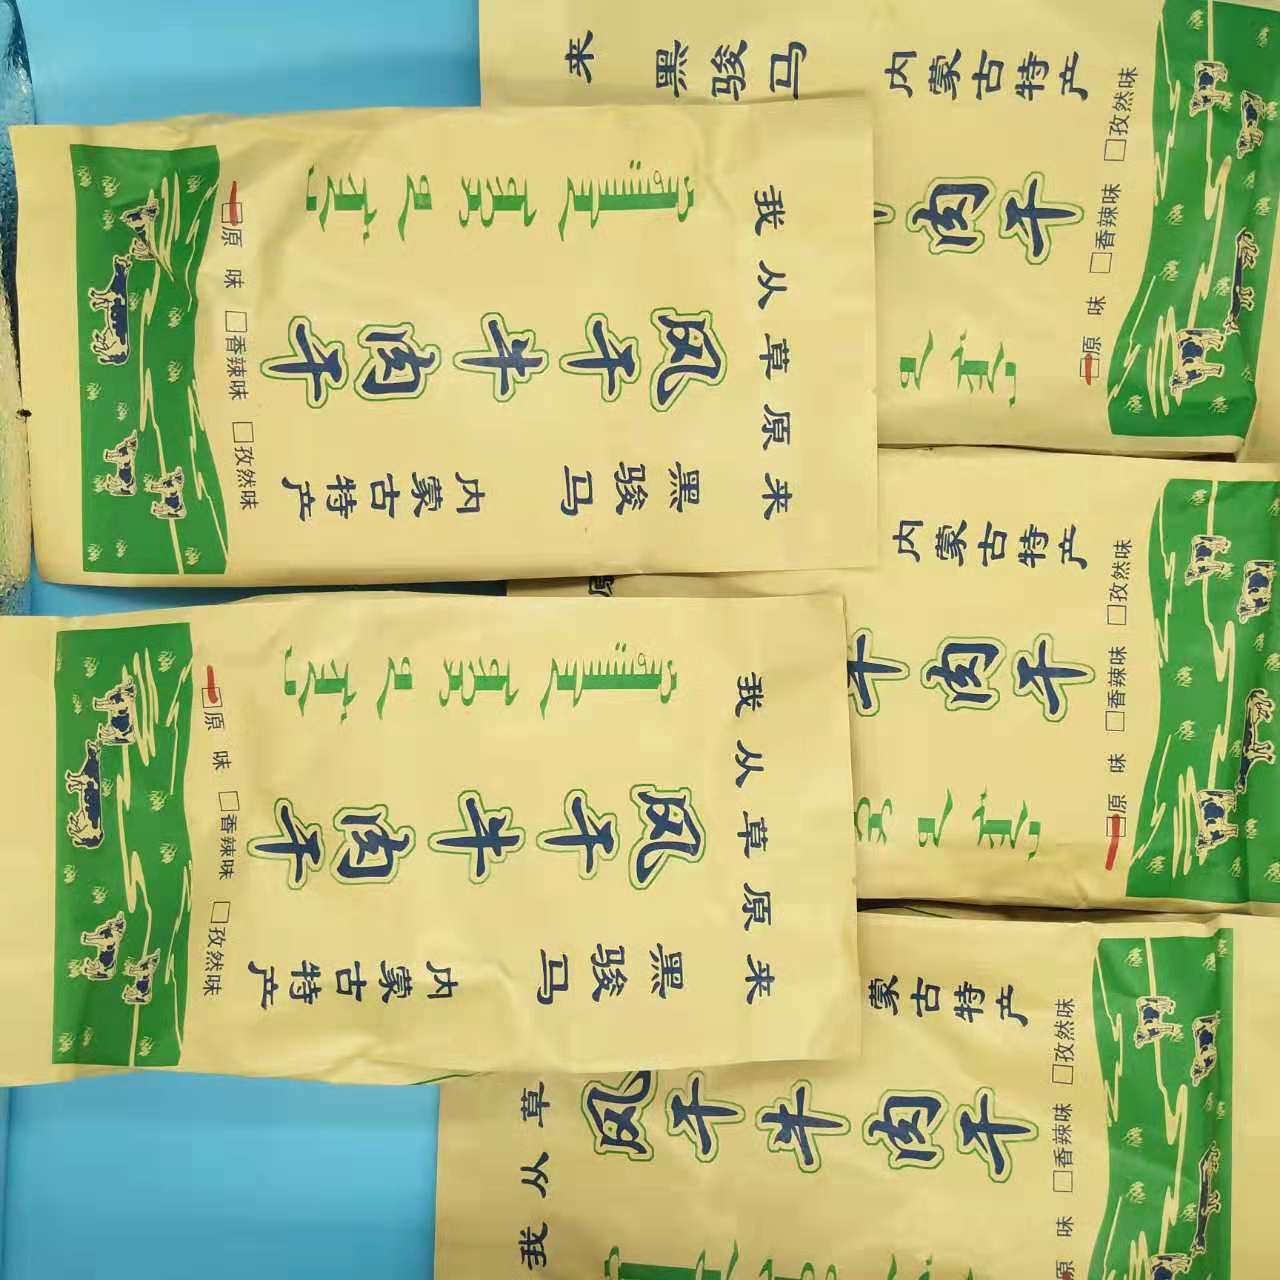 我从草原来
黑骏马
风干牛肉干
内蒙古特产
原味 □香辣味 □孜然味
我从草原来
黑骏马
风干牛肉干
内蒙古特产
原味 □香辣味 □孜然味
来
黑骏马
肉干
内蒙古特产
原味 □香辣味 □孜然味
牛肉干
内蒙古特产
原味 □香辣味 □孜然味
我从草
风干牛肉干
蒙古特产
原味 □香辣味 □孜然味